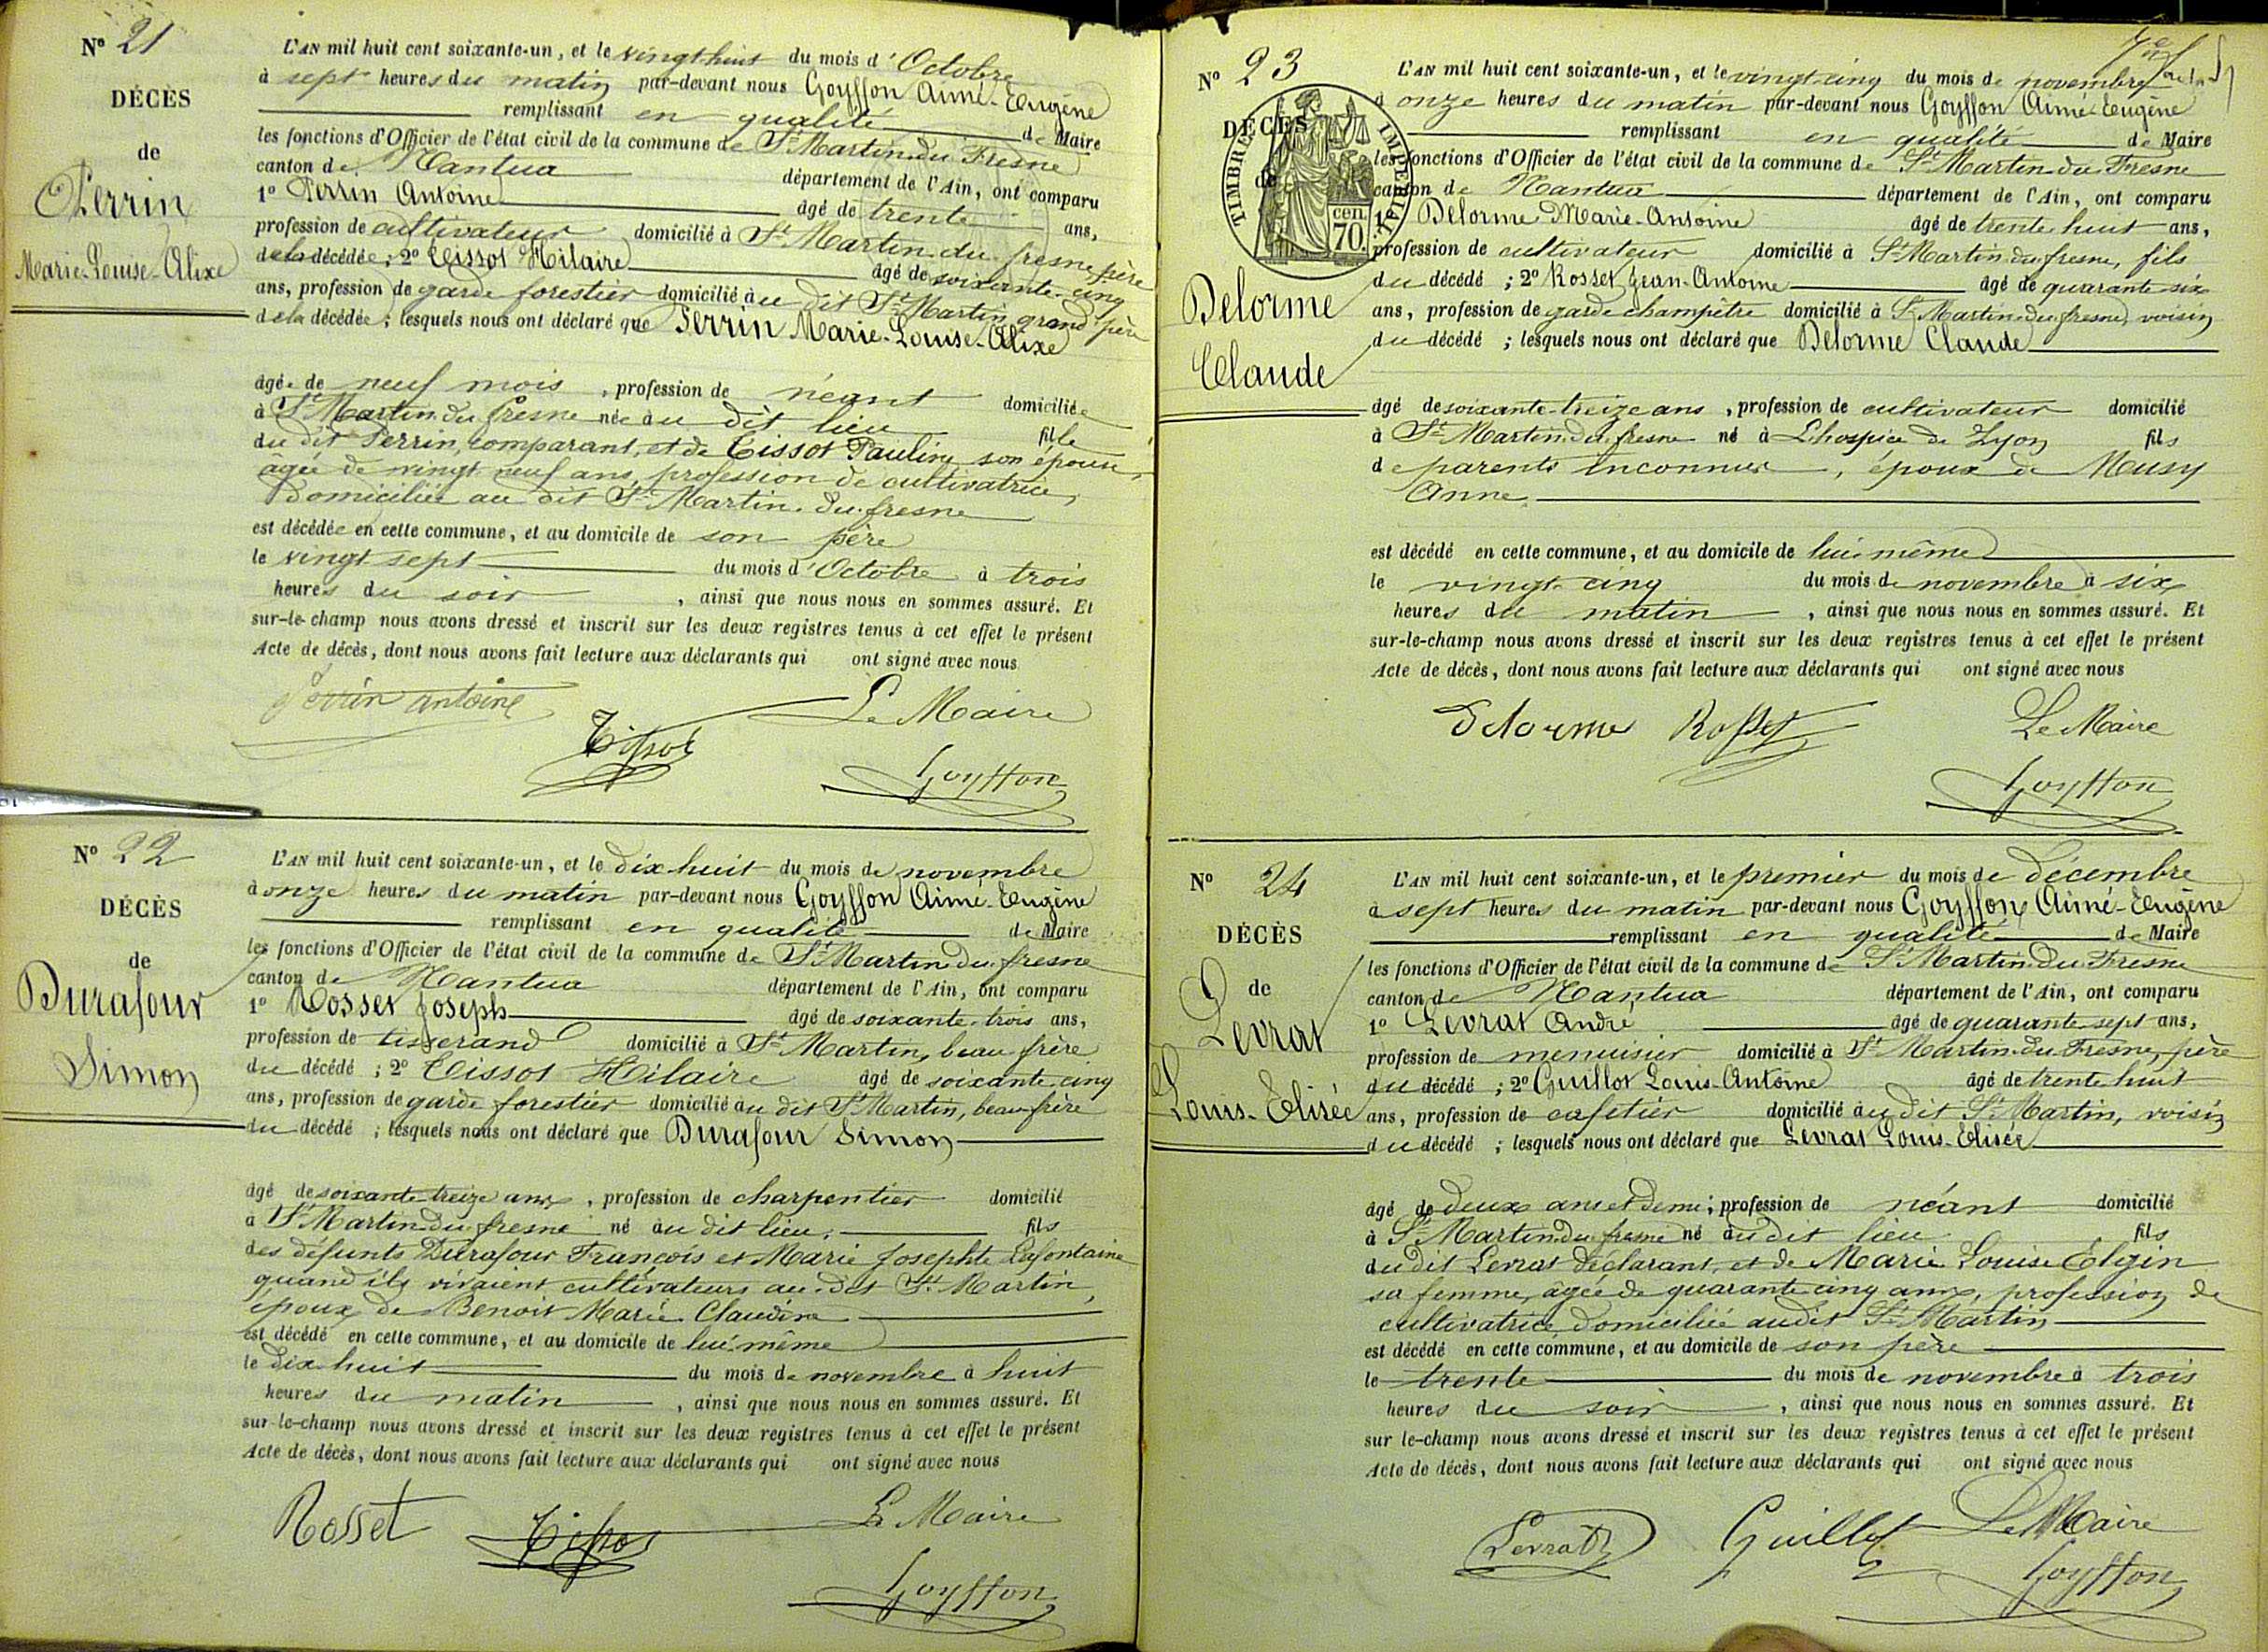 N° 21
DÉCÈS
de
Perrin
Marie-Louise-Alixe
L'AN mil huit cent soixante-un, et le vingt huit du mois d'Octobre
à sept heures du matin par-devant nous Goyffon Aimé-Eugène
remplissant en qualité de Maire
les fonctions d'Officier de l'état civil de la commune de St Martin du Fresne
canton de Nantua département de l'Ain, ont comparu
1° Perrin Antoine âgé de trente ans,
profession de cultivateur domicilié à St Martin du fresne, père
de la décédée ; 2° Tissot Hilaire âgé de soixante-cinq
ans, profession de garde forestier domicilié au dit St Martin, grand père
de la décédée ; lesquels nous ont déclaré que Perrin Marie-Louise-Alixe
âgée de neuf mois , profession de néant domiciliée
à St Martin du fresne née au dit lieu fille
du dit Perrin, comparant, et de Tissot Pauline son épouse,
âgée de vingt neuf ans, profession de cultivatrice,
domiciliée au dit St Martin du fresne
est décédée en cette commune, et au domicile de son père
le vingt sept du mois d'Octobre à trois
heures du soir , ainsi que nous nous en sommes assuré. Et
sur-le-champ nous avons dressé et inscrit sur les deux registres tenus à cet effet le présent
Acte de décès, dont nous avons fait lecture aux déclarants qui ont signé avec nous
Perrin antoine
Tissot
Le Maire
Goyffon
N° 22
DÉCÈS
de
Durafour
Simon
L'AN mil huit cent soixante-un, et le dix huit du mois de novembre
à onze heures du matin par-devant nous Goyffon Aimé-Eugène
remplissant en qualité de Maire
les fonctions d'Officier de l'état civil de la commune de St Martin du fresne
canton de Nantua département de l'Ain, ont comparu
1° Rosset Joseph âgé de soixante-trois ans,
profession de tisserand domicilié à St Martin, beau frère
du décédé ; 2° Tissot Hilaire âgé de soixante cinq
ans, profession de garde forestier domicilié au dit St Martin, beau-frère
du décédé ; lesquels nous ont déclaré que Durafour Simon
âgé de soixante-treize ans , profession de charpentier domicilié
à St Martin du fresne né au dit lieu, fils
des défunts Durafour François et Marie Josephte Lafontaine
quand ils vivaient cultivateurs au dit St Martin,
époux de Benoit Marie Claudine
est décédé en cette commune, et au domicile de lui même
le dix huit du mois de novembre à huit
heures du matin , ainsi que nous nous en sommes assuré. Et
sur-le-champ nous avons dressé et inscrit sur les deux registres tenus à cet effet le présent
Acte de décès, dont nous avons fait lecture aux déclarants qui ont signé avec nous
Rosset
Tissot
Le Maire
Goyffon
N° 23
DÉCÈS
de
TIMBRE IMPERIAL
cen. 70.
Delorme
Claude
L'AN mil huit cent soixante-un, et le vingt-cinq du mois de novembre
à onze heures du matin par-devant nous Goyffon Aimé-Eugène
remplissant en qualité de Maire
les fonctions d'Officier de l'état civil de la commune de St Martin du Fresne
canton de Nantua département de l'Ain, ont comparu
1° Delorme Marie-Antoine âgé de trente huit ans,
profession de cultivateur domicilié à St Martin du fresne, fils
du décédé ; 2° Rosset Jean-Antoine âgé de quarante six
ans, profession de garde champêtre domicilié à St Martin du fresne, voisin
du décédé ; lesquels nous ont déclaré que Delorme Claude
âgé de soixante-treize ans , profession de cultivateur domicilié
à St Martin du fresne né à Lhospice de Lyon fils
de parents inconnus , époux de Musy
Anne
est décédé en cette commune, et au domicile de lui même
le vingt-cinq du mois de novembre à six
heures du matin , ainsi que nous nous en sommes assuré. Et
sur-le-champ nous avons dressé et inscrit sur les deux registres tenus à cet effet le présent
Acte de décès, dont nous avons fait lecture aux déclarants qui ont signé avec nous
Delorme
Rosset
Le Maire
Goyffon
N° 24
DÉCÈS
de
Levrat
Louis-Elisée
L'AN mil huit cent soixante-un, et le premier du mois de Décembre
à sept heures du matin par-devant nous Goyffon Aimé-Eugène
remplissant en qualité de Maire
les fonctions d'Officier de l'état civil de la commune de St Martin du Fresne
canton de Nantua département de l'Ain, ont comparu
1° Levrat André âgé de quarante sept ans,
profession de menuisier domicilié à St Martin du Fresne, père
du décédé ; 2° Guillot Louis-Antoine âgé de trente huit
ans, profession de cafetier domicilié au dit St Martin, voisin
du décédé ; lesquels nous ont déclaré que Levrat Louis-Elisée
âgé de deux ans et demi ; profession de néant domicilié
à St Martin du fresne né au dit lieu fils
du dit Levrat déclarant, et de Marie Louise Elgin
sa femme, âgée de quarante cinq ans, profession de
cultivatrice, domiciliée au dit St Martin
est décédé en cette commune, et au domicile de son père
le trente du mois de novembre à trois
heures du soir , ainsi que nous nous en sommes assuré. Et
sur le-champ nous avons dressé et inscrit sur les deux registres tenus à cet effet le présent
Acte de décès, dont nous avons fait lecture aux déclarants qui ont signé avec nous
Levrat
Guillot
Le Maire
Goyffon